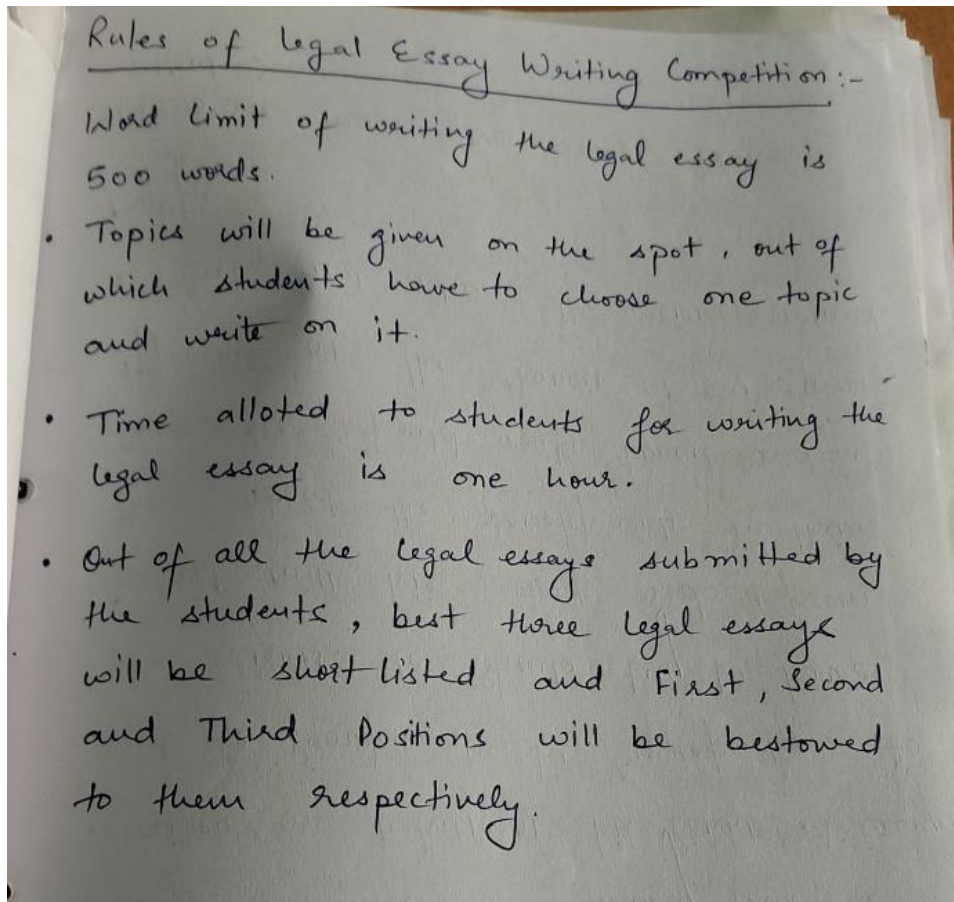 Rules of Legal Essay Writing Competition :-
Word Limit of writing the legal essay is
500 words.
• Topics will be given on the spot, out of
which students have to choose one topic
and write on it.
• Time alloted to students for writing the
legal essay is one hour.
• Out of all the legal essays submitted by
the students, best three legal essays
will be shortlisted and First, Second
and Third Positions will be bestowed
to them respectively.